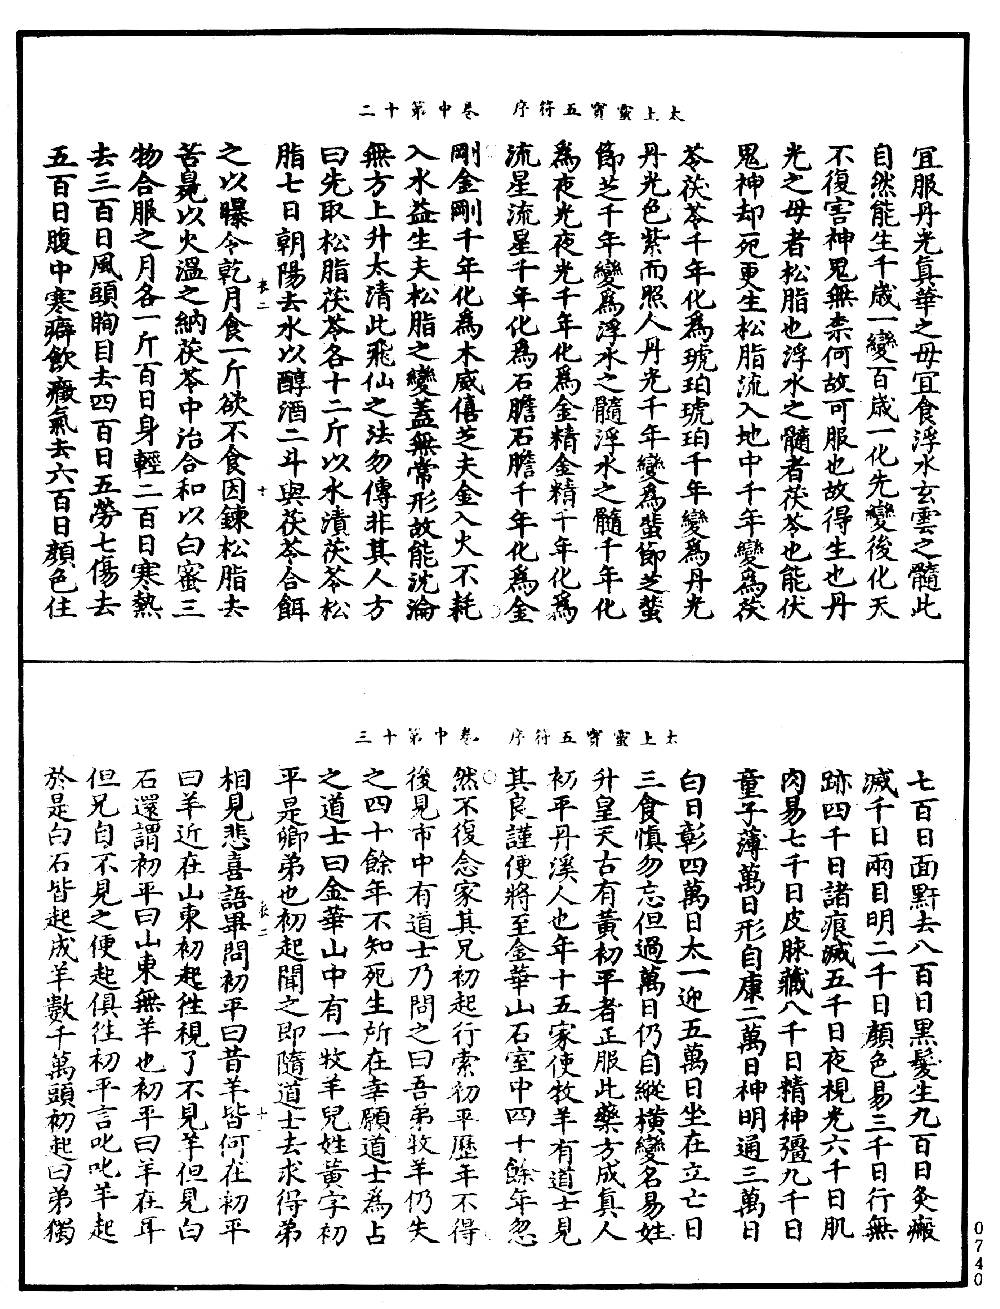 太上靈寶五符序　卷中第十二
宜服丹光真華之母宜食浮水玄雲之髓此
自然能生千歲一變百歲一化先變後化天
不復害神鬼無柰何故可服也故得生也丹
光之母者松脂也浮水之髓者茯苓也能伏
鬼神却死更生松脂流入地中千年變為茯
苓茯苓千年化為琥珀琥珀千年變為丹光
丹光色紫而照人丹光千年變為蜚節芝蜚
節芝千年變為浮水之髓浮水之髓千年化
為夜光夜光千年化為金精金精千年化為
流星流星千年化為石膽石膽千年化為金
剛金剛千年化為木威僖芝夫金入火不耗
入水益生夫松脂之變蓋無常形故能沈淪
無方上升太清此飛仙之法勿傳非其人方
曰先取松脂茯苓各十二斤以水漬茯苓松
脂七日朝陽去水以醇酒二斗與茯苓合餌
之以曝令乾月食一斤欲不食因鍊松脂去
苦臭以火溫之納茯苓中治合和以白蜜三
物合服之月各一斤百日身輕二百日寒熱
去三百日風頭眴目去四百日五勞七傷去
五百日腹中寒癖飲癥氣去六百日顏色住
太上靈寶五符序　卷中第十三
七百日面黚去八百日黑髮生九百日灸瘢
滅千日兩目明二千日顏色易三千日行無
跡四千日諸痕滅五千日夜視光六千日肌
肉易七千日皮脉藏八千日精神彊九千日
童子薄萬日形自康二萬日神明通三萬日
白日彰四萬日太一迎五萬日坐在立亡日
三食慎勿忘但過萬日仍自縱橫變名易姓
升皇天古有黃初平者正服此藥方成真人
初平丹溪人也年十五家使牧羊有道士見
其良謹便將至金華山石室中四十餘年忽
然不復念家其兄初起行索初平歷年不得
後見市中有道士乃問之曰吾弟牧羊仍失
之四十餘年不知死生所在幸願道士為占
之道士曰金華山中有一牧羊兒姓黃字初
平是卿弟也初起聞之即隨道士去求得弟
相見悲喜語畢問初平曰昔羊皆何在初平
曰羊近在山東初起徃視了不見羊但見白
石還謂初平曰山東無羊也初平曰羊在耳
但兄自不見之便起俱徃初平言叱叱羊起
於是白石皆起成羊數千萬頭初起曰弟獨
衣二　十
衣二　十一
0740